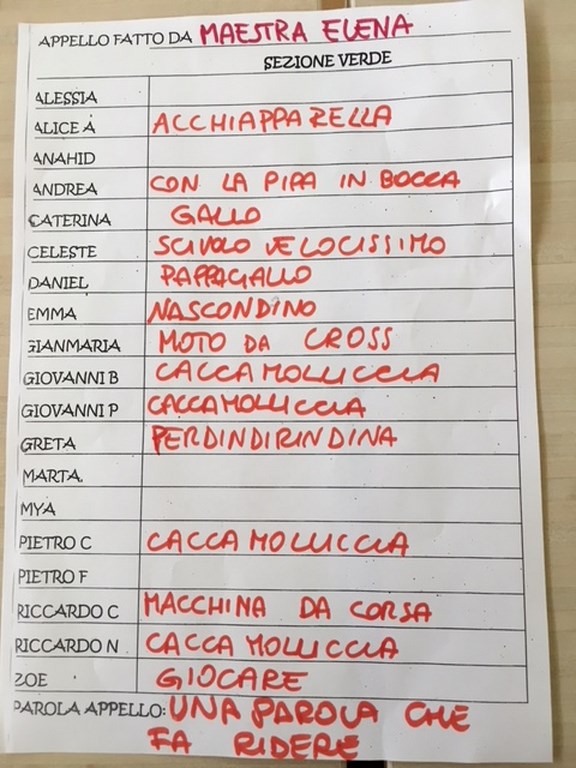 APPELLO FATTO DA MAESTRA ELENA
SEZIONE VERDE
ALESSIA
ALICE A ACCHIAPPARELLA
ANAHID
ANDREA CON LA PIPA IN BOCCA
CATERINA GALLO
CELESTE SCIVOLO VELOCISSIMO
DANIEL PAPPAGALLO
EMMA NASCONDINO
GIANMARIA MOTO DA CROSS
GIOVANNI B CACCA MOLLICCIA
GIOVANNI P CACCA MOLLICCIA
GRETA PERDINDIRINDINA
MARTA.
MYA
PIETRO C CACCA MOLLICCIA
PIETRO F
RICCARDO C MACCHINA DA CORSA
RICCARDO N CACCA MOLLICCIA
ZOE GIOCARE
PAROLA APPELLO: UNA PAROLA CHE
FA RIDERE